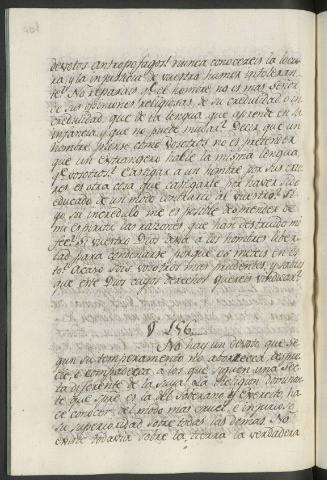 devotos antropofagos! nunca conocereis la locu-
ra, y la injusticia de vuestro humor intoleran-
te? No reparais q.e el hombre no es mas Señor
de sus opiniones religiosas, de su credulidad o in-
credulidad, que de la lengua que aprende en la
infancia, y que no puede mudar? Decir que un
hombre piense como vosotros no es pretender
que un extrangero hable la misma lengua,
q.e vosotros? Castigar a un hombre por sus erro-
res, es otra cosa que castigarle por haver sido
educado de un modo contrario al vuestro? Si
yo, su incredulo me es posible desprender de
mi espiritu las razones que han destruido mi
fee? Si vuestro Dios deja a los hombres liber-
tad para condenarse porque os meteis en es-
to? Acaso sois vosotros mas prudentes, y sabios
que este Dios cuyos derechos quereis vindicar?
§ 156.
No hay un devoto que se-
gun su temperamento no aborrezca, despre-
cie, o compadezca a los que siguen una Sec-
ta diferente de la suya. La Religion dominan-
te que spre. es la del Soberano y Exercito, ha-
ce conocer del modo mas cruel, e injurioso
su superioridad sobre todas las demas. No
existe todavia sobre la tierra la verdadera